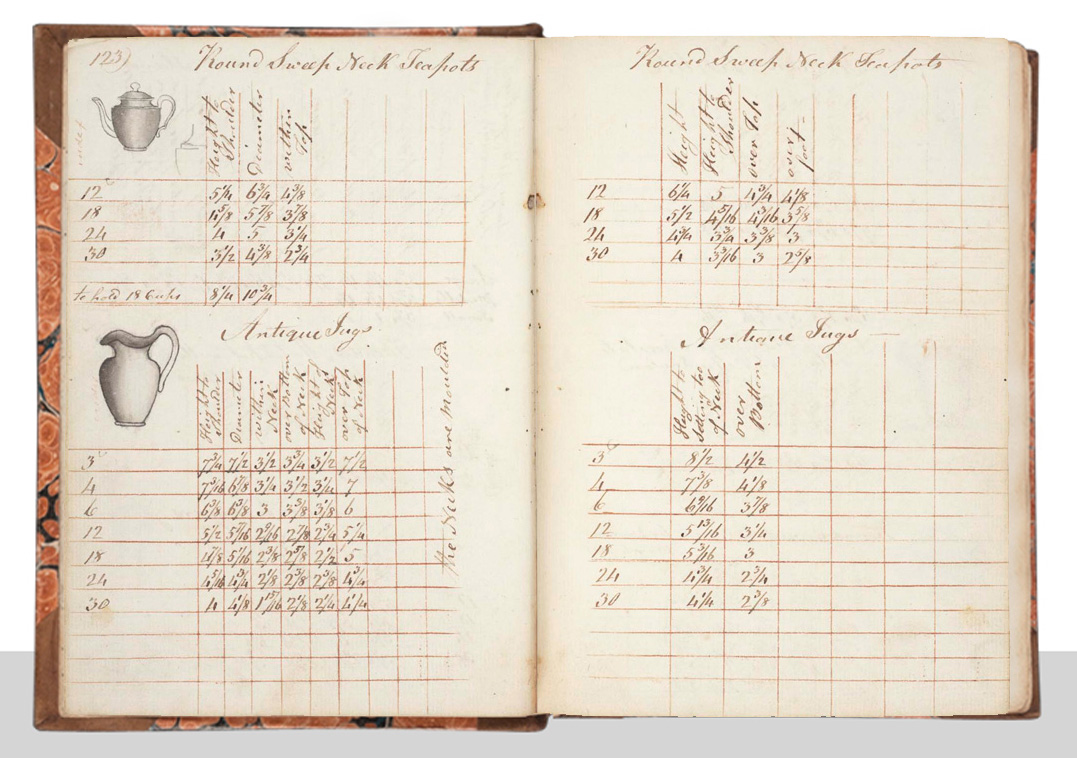 123)
Round Sweep Neck Teapots
Height to Shoulder | Deameter | within Top
12 | 5 1/4 | 6 3/4 | 4 3/8
18 | 4 5/8 | 5 7/8 | 3 7/8
24 | 4 | 5 | 3 1/4
30 | 3 1/2 | 4 3/8 | 2 3/4
to hold 18 Cups | 8 1/4 | 10 3/4
Antique Jugs
Height to Shoulder | Diameter | within Neck | over Bottom of Neck | Height of Neck | over Top of Neck
the Necks are moulded
3 | 7 3/4 | 7 1/2 | 3 1/2 | 3 3/4 | 3 1/2 | 7 1/2
4 | 7 3/16 | 6 7/8 | 3 1/4 | 3 1/2 | 3 1/4 | 7
6 | 6 3/8 | 6 3/8 | 3 | 3 3/8 | 3 1/8 | 6
12 | 5 1/2 | 5 7/16 | 2 9/16 | 2 7/8 | 2 3/4 | 5 1/4
18 | 4 7/8 | 5 1/16 | 2 3/8 | 2 5/8 | 2 1/2 | 5
24 | 4 5/16 | 4 3/4 | 2 1/8 | 2 3/8 | 2 3/8 | 4 3/4
30 | 4 | 4 1/8 | 1 15/16 | 2 1/8 | 2 1/4 | 4 1/4
Round Sweep Neck Teapots
Height | Height to Shoulder | over Top | over foot
12 | 6 1/4 | 5 | 4 3/4 | 4 1/8
18 | 5 1/2 | 4 5/16 | 4 3/16 | 3 5/8
24 | 4 3/4 | 3 3/4 | 3 3/8 | 3
30 | 4 | 3 3/16 | 3 | 2 5/8
Antique Jugs
Height to Seting too of Neck | over Bottom
3 | 8 1/2 | 4 1/2
4 | 7 7/8 | 4 1/8
6 | 6 9/16 | 3 7/8
12 | 5 13/16 | 3 1/4
18 | 5 3/16 | 3
24 | 4 3/4 | 2 3/4
30 | 4 1/4 | 2 3/8